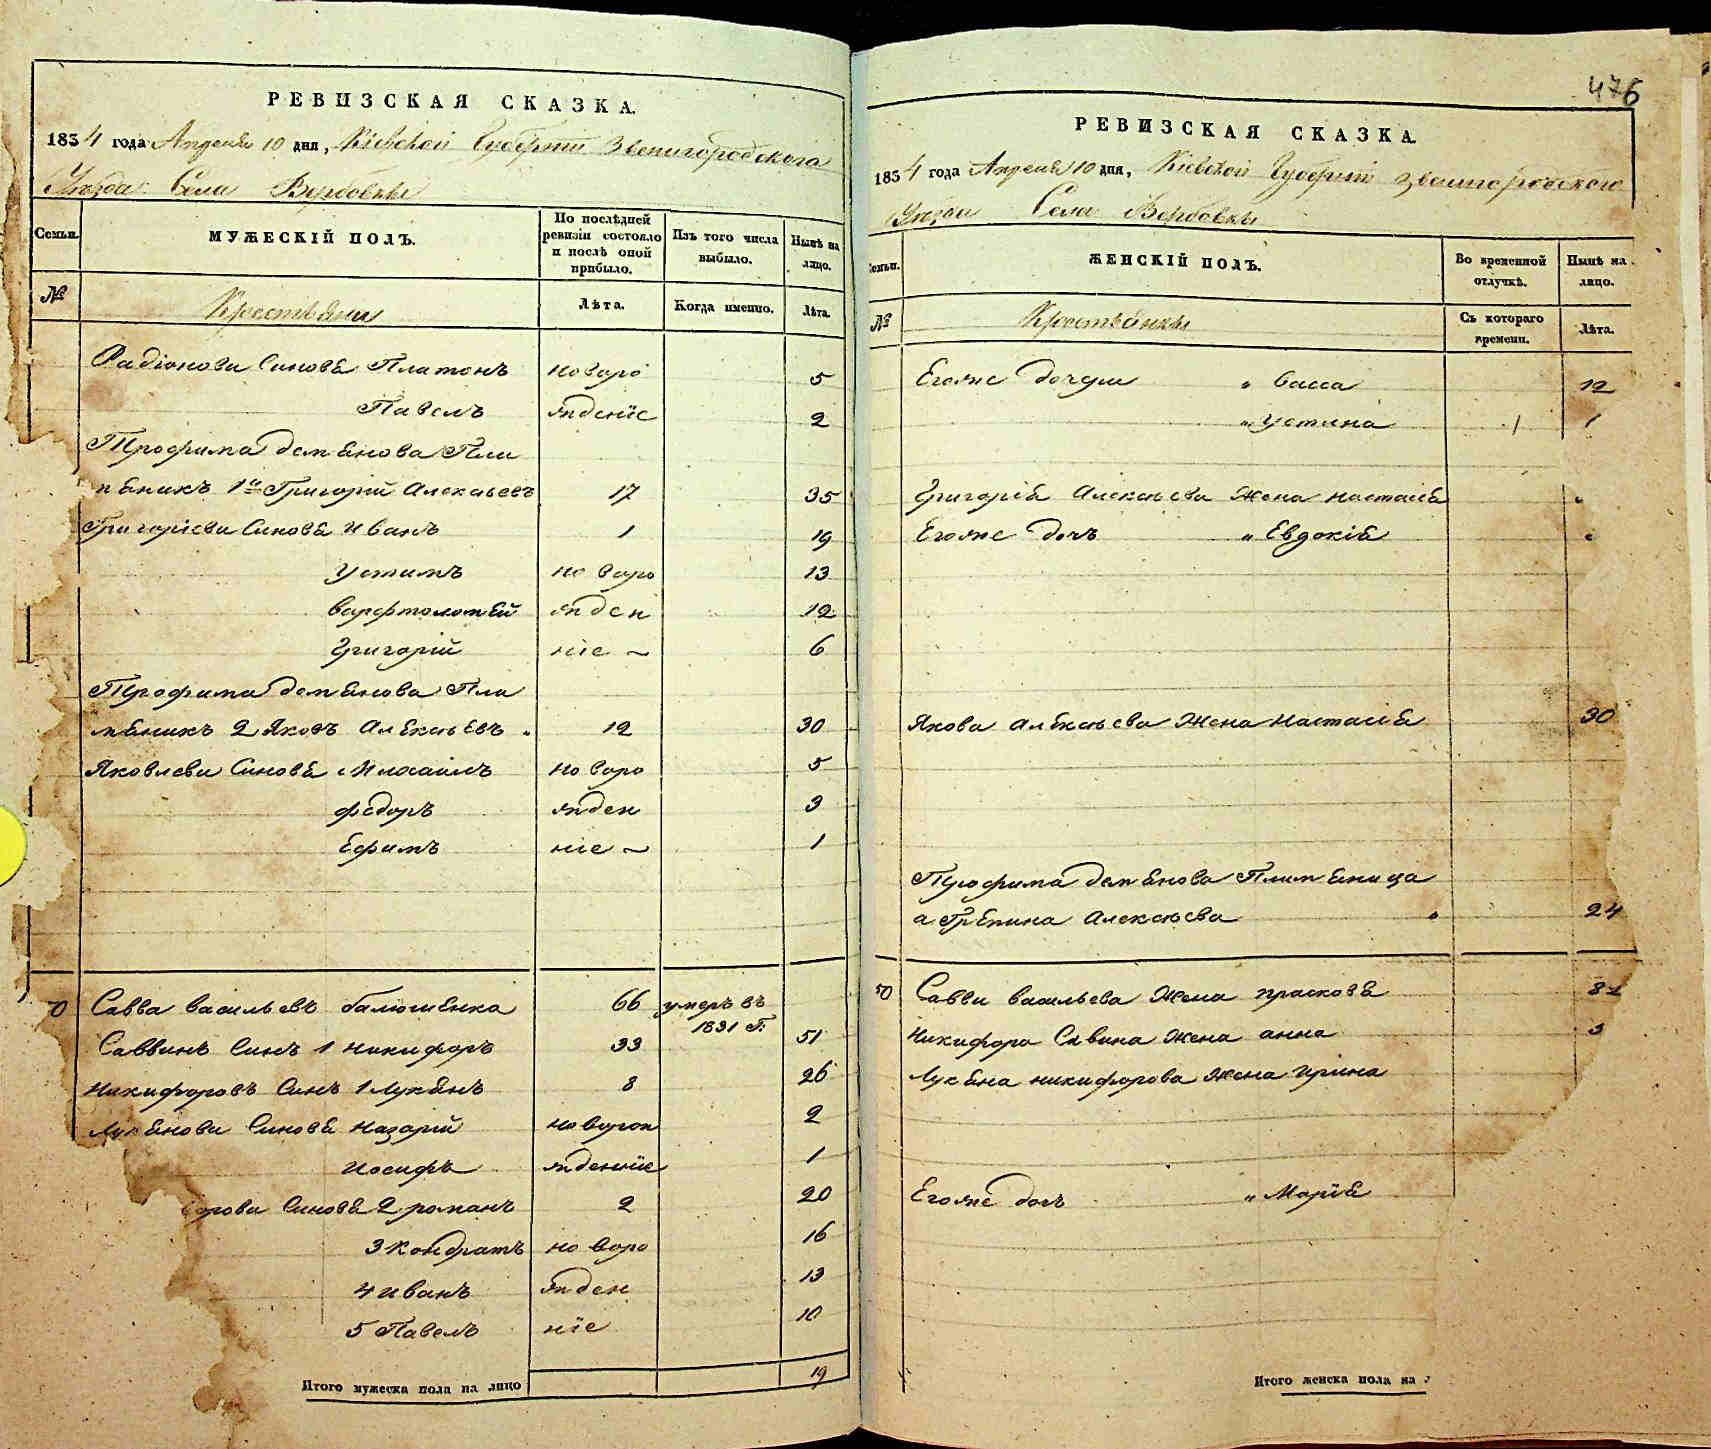 РЕВИЗСКАЯ СКАЗКА.
1834 года Апреля 10 дня, Кіевской Губерніи Звенигородского
Уезда Села Вербовки
Семьи.
МУЖЕСКІЙ ПОЛЪ.
По послѣдней ревизіи состояло и послѣ оной прибыло.
Изъ того числа выбыло.
Нынѣ на лицо.
№
Крестьяни
Лѣта.
Когда именно.
Лѣта.
Радіонови Синовя Платонъ новоро 5
Павелъ жденіе 2
Трофима демянова Пли
мяникъ 1й Григорій Алексѣевъ 17 35
Григоріеви Синовя Иванъ 1 19
Устимъ новоро 13
варфтоломѣй жден 12
Григорій ніе 6
Трофима демянова Пли
мяникъ 2 Яковъ Алексѣевъ 12 30
Яковлеви Синовя Михаилъ новоро 5
федоръ жден 3
Ефимъ ніе 1
50 Савва васильевъ балюшенко 66 умеръ въ
1831 Г:
Саввинъ Синъ 1 никифоръ 33 51
Никифоровъ Синъ 1 Лукянъ 8 26
Лукянови Синовя назарій новорон 2
иосифъ жденніе 1
орови Синовя 2 романъ 2 20
3 кондратъ новоро 16
4 иванъ жден 13
5 Павелъ ніе 10
Итого мужеска пола на лицо 19
476
РЕВИЗСКАЯ СКАЗКА.
1834 года Апреля 10 дня, Кіевской Губерніи Звенигородского
Уезда Села Вербовки
Семьи.
ЖЕНСКІЙ ПОЛЪ.
Во временной отлучкѣ.
Нынѣ на лицо.
№
Крестьянки
Съ котораго времени.
Лѣта.
Егоже дочери " васса 12
" Устина 1 1
Григорія Алексѣева Жена настасія
Егоже дочъ " Евдокія
Якова Алексѣева Жена настасія 30
Трофима демянова Племяница
агрепина Алексѣева 24
50 Савви васильева Жена прасковя
Никифора Савина Жена анна
Лукяна никифорова Жена ирина
Егоже дочъ " Марія
Итого женска пола на